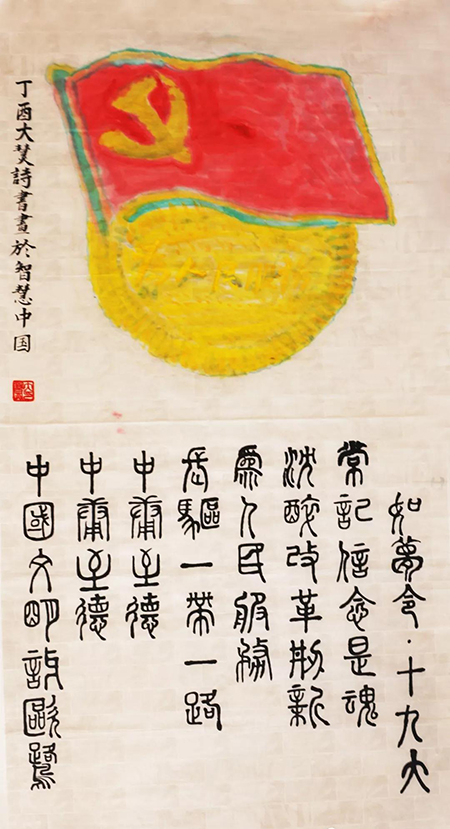 丁酉大詩書畫於智慧中国
如夢令·十九大
常記信念是魂
沈醉改革刱新
爲人民服務
長驅一帶一路
中庸至德
中庸至德
中國文明鷺